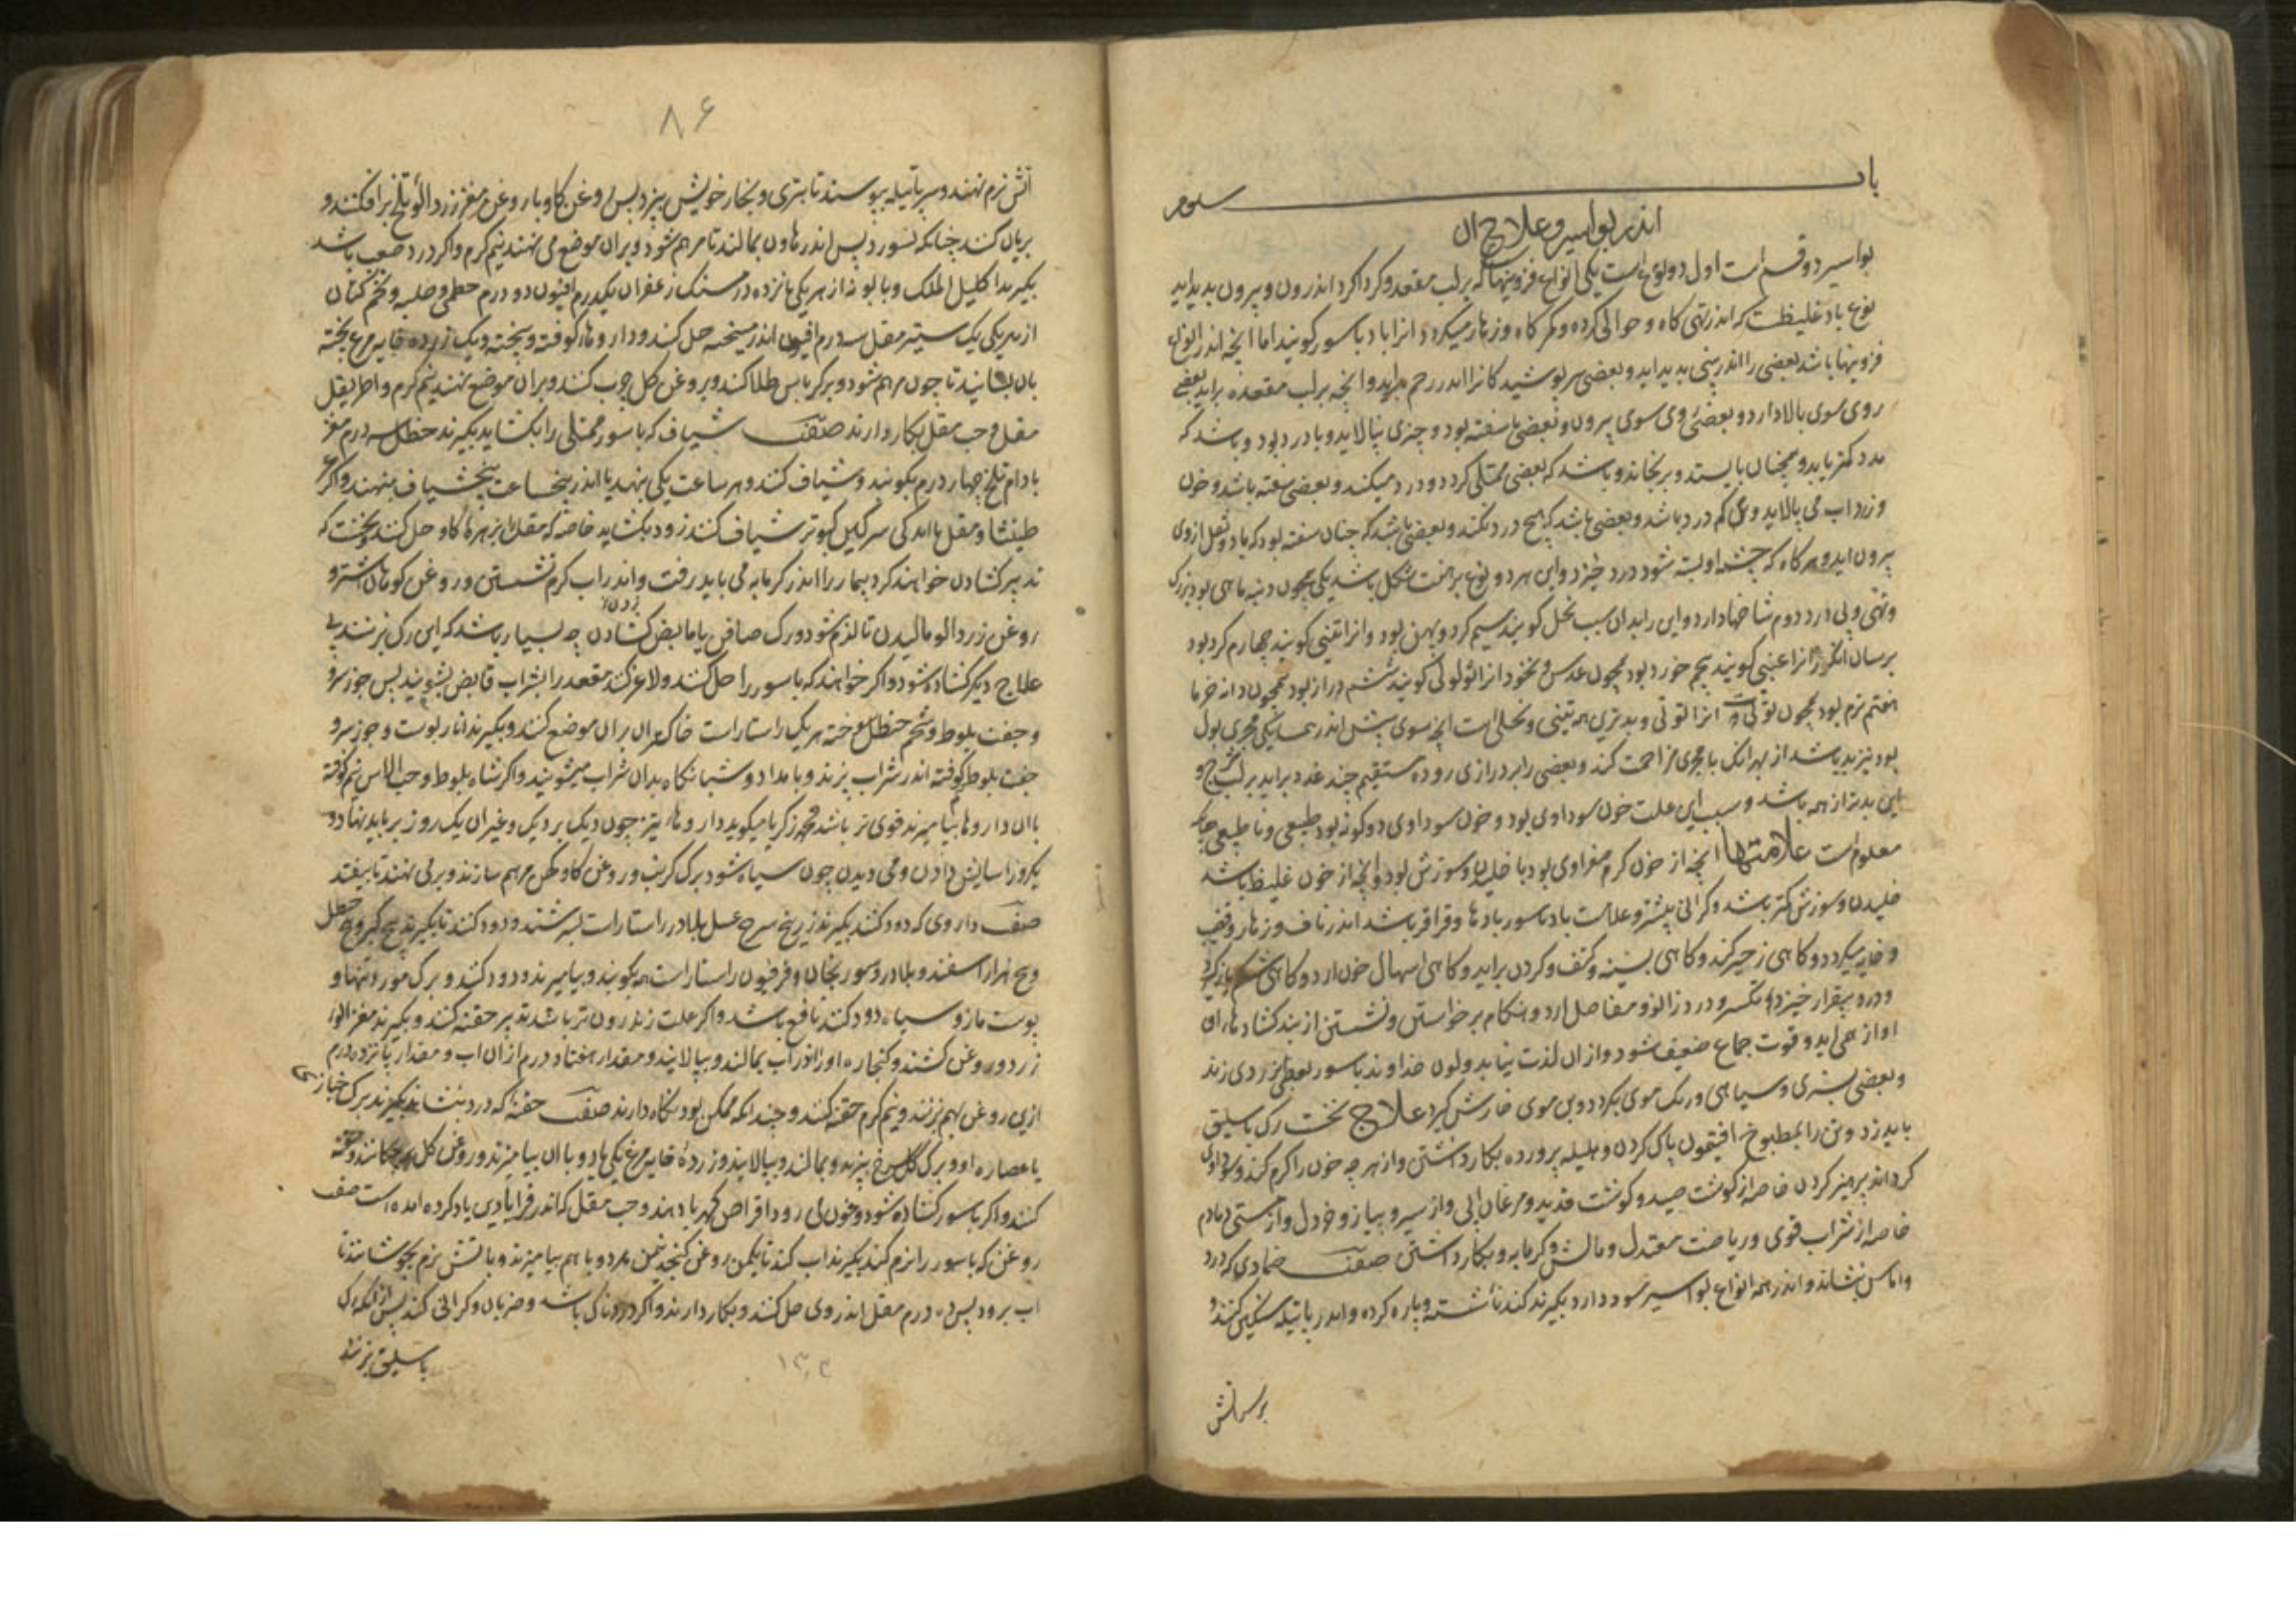 باب سوم
اندر بواسیر و علاج ان
بواسیر دو قسم است اول دو نوع است یکی انواع فزونیهاکه بر لب مقعد و کرداکرد اندرون و بیرون بدید اید
نوع باد غلیظست که اندر تهی کاه و حوالی کرده و کمر کاه و زهار میکردد انرا باد باسور کویند اما انچه اندر انواع
فزونیها باشد بعضی را اندر بینی بدید اید و بعضی سر پوشید کانرا اندر رحم براید و انچه بر لب مقعده براید بعضی
روی سوی بالا دارد و بعضی روی سوی بیرون و بعضی ناسفته بود و چیزی نپالاید و با درد بود و باشد که
مدد کمتر یابد و همچنان بایستد و برنجاند و باشد که بعضی ممتلی کردد و درد میکند و بعضی سفته باشد و خون
و زرداب می پالاید و کم درد باشد و بعضی باشد که هیچ درد نکند و بعضی باشد که چنان سفته بود که باد و ثفل ازوی
بیرون اید و هرکاه که چشمه او بسته شود درد خیزد و این هر دو نوع بر هفت شکل باشد یکی همچون دنبه ماهی بود بزرک
و پی دارد دوم شاخها دارد و این را بدان سبب نخل کویند سیم کرد و پهن بود و انرا تینی کویند چهارم کرد بود
برسان انکور انرا عنبی کویند پنجم خورد بود همچون عدس و نخود انرا ثولولی کویند ششم دراز بود همچون دانه خرما
هفتم نرم بود همچون توت انرا توتی و بدترین همه تینی و نخلی است انچه سوی پیش اندر همسایکی مجری بول
بود نیز بد باشد از بهر انک با مجری مزاحمت کند و بعضی را بر درازی روده مستقیم چند غدد براید بر لب شرج و
این بدتر از همه باشد و سبب این علت خون سوداوی بود و خون سوداوی دو کونه بود طبیعی و نا طبیعی چنانکه
معلوم است علامتها انچه از خون کرم صفراوی بود با خلیدن و سوزش بود و انچه از خون غلیظ باشد
خلیدن و سوزش کمتر باشد و کرانی بیشتر و علامت باد باسور بادها و قراقر باشد اندر ناف و زهار و قضیب
و خایه میکردد و کاهی زحیر کند و کاهی بسینه و کتف و کردن براید و کاهی اسهال خون ارد و کاهی شکم باز کیرد
و درد بیقرار خیزد و تکسر و درد زانو و مفاصل ارد و هنکام برخواستن و نشستن از بند کشادها اوی
اواز همی اید و قوت جماع ضعیف شود و ازان لذت نیابد و لون خداوند باسور بعضی بزردی زند
و بعضی بسبزی و سیاهی و رنک موی بکردد و بن موی خارش کیرد علاج نخست رک باسلیق
باید زد و تن را بمطبوخ افتیمون پاک کردن و هلیله پرورده بکار داشتن و از هر چه خون را کرم کند و سوداوی
کرداند پرهیز کردن خاصه از کوشت صید و کوشت قدید و مرغان ابی و از سیر و پیاز و خردل و از مستی دمادم
خاصه از شراب قوی و ریاضت معتدل و مالش و کرمابه و بکار داشتن صفت ضمادی که درد
و اماس بنشاند و اندر همه انواع بواسیر سود دارد بکیرند کندنا شسته و پاره کرده و اندر پاتیله سنکین کنند و
بر سر اتش
۸۶
اتش نرم نهند و سر پاتیله بپوسند تا بتری و بخار خویش بپزد پس روغن کاو یا روغن مغز زردالو تلخ برافکنند و
بریان کنند چنانکه نسوزد پس اندر هاون بمالند تا مرهم شود و بران موضع می نهند نیم کرم و اکر درد صعب باشد
بکیرند اکلیل الملک و بابونه از هر یکی پانزده درمسنک زعفران یکدرم افیون دو درم خطمی و حلبه و تخم کتان
از هر یکی یک ستیر مقل سه درم افیون اندر میبخته حل کنند و داروها کوفته و بیخته و یک زرده خایه مرغ پخته
بان بسایند تا چون مرهم شود و بر کرباس طلا کنند و بروغن کل چرب کنند و بران موضع نهند نیم کرم و اطریفل
مقل و حب مقل بکار دارند صفت شیاف که باسور ممتلی را بکشاید بکیرند حنظل سه درم مغز
بادام تلخ چهار درم بکوبند و شیاف کنند و هر ساعت یکی بنهد یا اندر پنج ساعت پنج شیاف بنهند و اکر
و مقل با اندکی سرکین کبوتر شیاف کنند زود بکشاید خاصه که مقل را بزهره کاو حل کنند و نخست که
تدبیر کشادن خواهند کرد بیمار را اندر کرمابه می باید رفت و اندر اب کرم نشستن و روغن کوهان اشتر و
روغن زردالو مالیدن تا نرم شود و رک صافن یا مابض کشادن چه بسیار باشد که این رک بزنند بی
علاج دیکر کشاده شود و اکر خواهند که باسور را حل کنند و لاغر کنند مقعد را بشراب قابض بشویند پس جوز سرو
و جفت بلوط و شحم حنظل سوخته هر یک راستاراست خاکستر ان بران موضع کنند و بکیرند انار پوست و جوز سرو
جفت بلوط کوفته اندر شراب پزند و بامداد و شبانکاه بدان شراب میشویند و اکر شاه بلوط و حب الاس نیم کوفته
باان داروها بیامیزند قوی تر باشد محمد زکریا میکوید داروهاء تیز چون دیک بر دیک و غیر ان یک روز برباید نهاد و
یکروز اسایش دادن و می دیدن چون سیاه شود برک کرنب و روغن کاو کهن مرهم سازند و بروی نهند تا بیفتد
صفت داروی که دود کنند بکیرند زرنیخ سرخ عسل بلادر راستاراست بسرشند و دود کنند تا بکیرند بیخ کبر و بیخ حنظل
و بیخ هزار اسفند و بلادر و سورنجان و فرفیون راستاراست همه بکوبند و بیامیزند و دود کنند و برک مورد تنها و
پوست مازو سیاه دود کنند نافع باشد و اکر علت زاندرون تر باشد تدبیر حقنه کنند و بکیرند مغز الوء
زرد و روغن کشند و کنجاره او اندر اب بمالند و بپالایند و مقدار هفتاد درم ازان اب و مقدار پانزده درم
ازین روغن بهم برزنند و نیم کرم حقنه کنند و چندانکه ممکن بود نکاه دارند صفت حقنه که درد بنشاند بکیرند برک خبازی
یا عصاره او و برک کل سرخ بپزند و بمالند و بپالایند و زردۀ خایه مرغ یکی یا دو باان بیامیزند و روغن کل برچکانند و حقنه
کنند و اکر باسور کشاده شود و خون می رود اقراص کهربا دهند و حب مقل که اندر قرابادین یاد کرده امده است صفت
روغن که باسور را نرم کند بکیرند اب کندنا یکمن روغن کنجد نیمن هر دو با هم بیامیزند و باتش نرم بجوشانند تا
اب برود پس ده درم مقل اندر وی حل کنند و بکار دارند و اکر دردناک باشد و ضربان و کرانی کند پس ازانکه رک
باسلیق بزنند